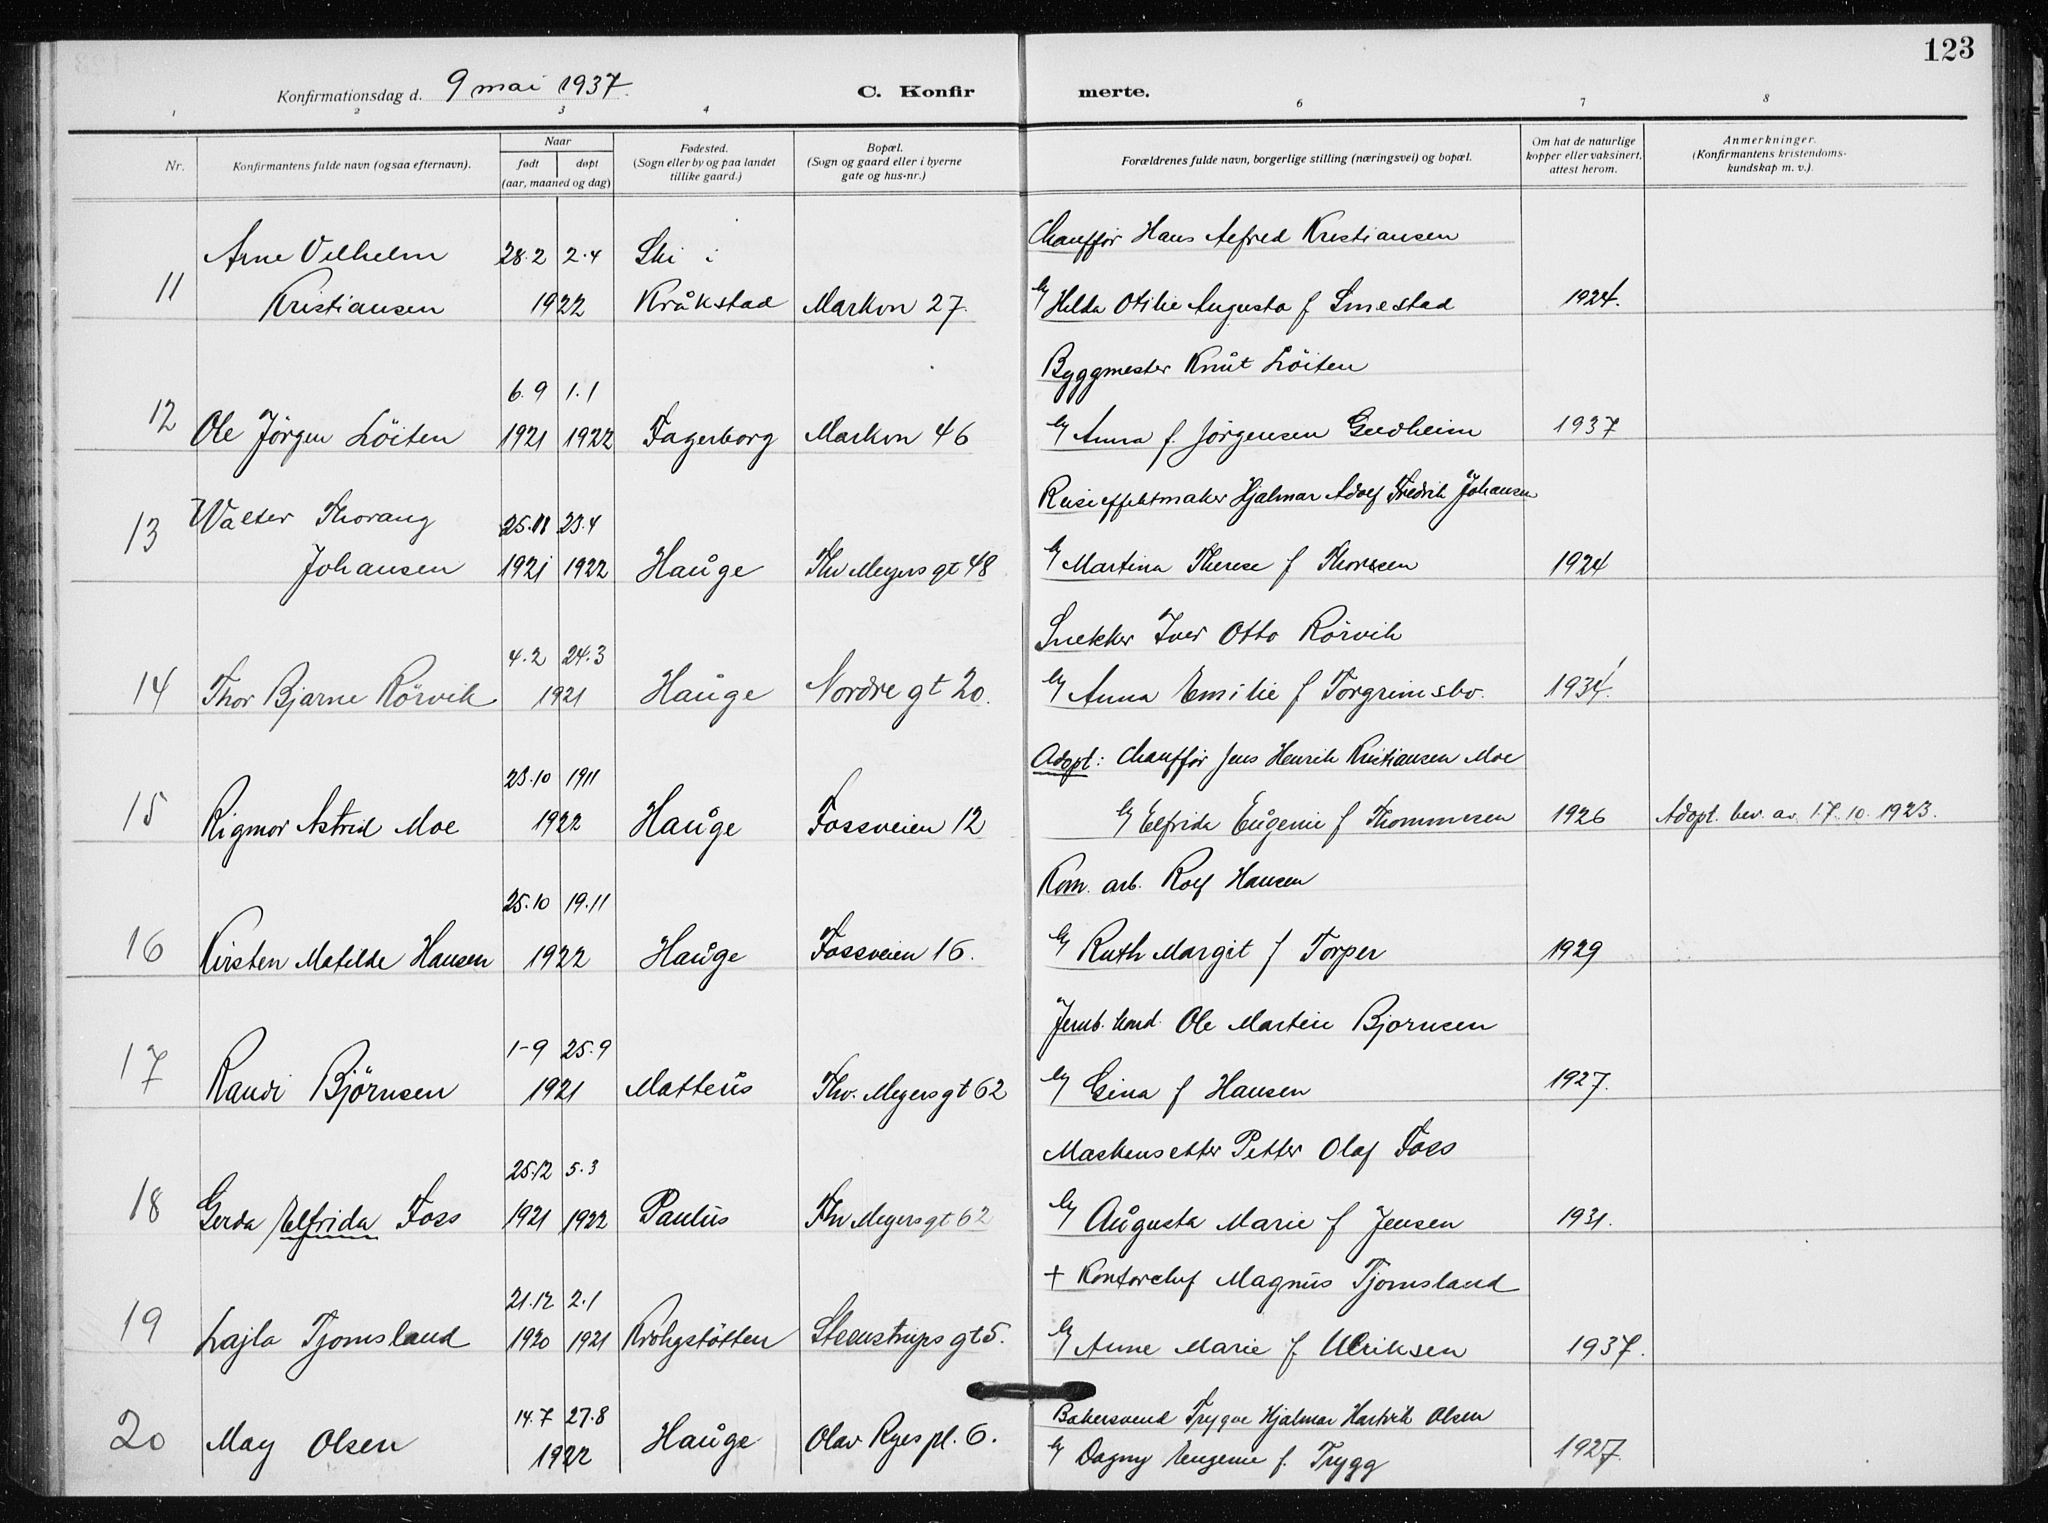 123
Konfirmationsdag d. 9 mai 1937. C. Konfirmerte.
1 2 3 4 6 7 8
Nr. Konfirmantens fulde navn (ogsaa efternavn). Naar født døpt (aar, maaned og dag) Fødested. (Sogn eller by og paa landet tillike gaard.) Bopæl. (Sogn og gaard eller i byerne gate og hus-nr.) Forældrenes fulde navn, borgerlige stilling (næringsvei) og bopæl. Om hat de naturlige kopper eller vaksinert, attest herom. Anmerkninger. (Konfirmantens kristendomskundskap m. v.).
Chauffør Hans Alfred Kristiansen
Arne Vilhelm 28.2 2.4 Ski i
11 Kristiansen 1922 Kråkstad Markvn 27. Hilda Otilie Augusta f Smestad 1924.
Byggmester Knut Löiten
6.9 1.1
12 Ole Jörgen Löiten 1921 1922 Fagerborg Markvn 46 Anna f. Jörgensen 1937
Reiseeffektmaker Hjalmar Adolf Fredrik Johansen
Walter Thorang 25.11 23.4
13 Johansen 1921 1922 Hauge Thv Meyers gt 48 Martina Therese f Thoresen 1924
Snekker Iver Otto Rörvik
4.2 24.3
14 Thor Bjarne Rörvik 1921 Hauge Nordre gt 20. Anna Emilie f Torgrimsbo. 1934.
Adopt: Chauffør Jens Henrik Kristiansen Moe
23.10 1911
15 Rigmor Astrid Moe 1922 Hauge Fossveien 12 Elfrida Eugenie f Thommesen 1926 Adopt. bev. av. 17.10.1923.
Kom. arb. Rolf Hansen
25.10 19.11
16 Kirsten Matilde Hansen 1922 Hauge Fossveien 16. Ruth Margit f Torper 1929
Jernb. kond. Ole Martin Bjørnsen
1-9 25.9
17 Randi Björnsen 1921 Matteus Thv. Meyers gt 62 Gina f Hansen 1927.
Maskinsetter Petter Olaf Foss
25.12 5.3
18 Gerda Elfrida Foss 1921 1922 Paulus Thv Meyers gt 62 Augusta Marie f Jensen 1931.
+ Kontorchef Magnus Tjomsland
21.12 2.1
19 Lajla Tjomsland 1920 1921 Krohgstötten Steenstrups gt 5. Anne Marie f. Ulriksen 1937.
14.7 27.8 Bakersvend Trygve Hjalmar Hartvik Olsen
20 May Olsen 1922 Hauge Olav Ryes pl. 6. Dagny Eugenie f. Trygg 1927.